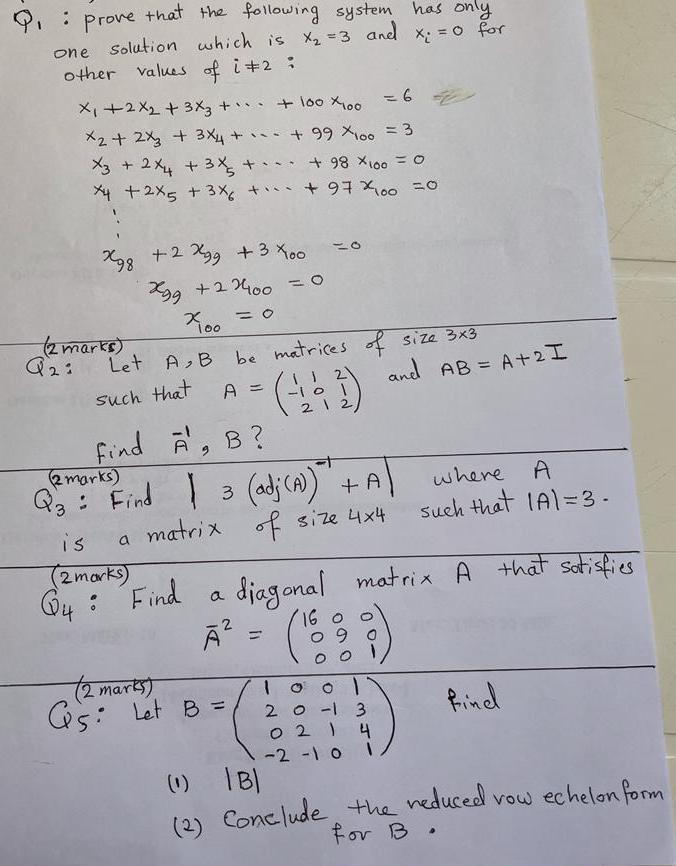 Q1 : prove that the following system has only
one solution which is x₂ = 3 and xᵢ = 0 for
other values of i ≠ 2 :
x₁ + 2x₂ + 3x₃ + ... + 100 x₁₀₀ = 6
x₂ + 2x₃ + 3x₄ + ... + 99 x₁₀₀ = 3
x₃ + 2x₄ + 3x₅ + ... + 98 x₁₀₀ = 0
x₄ + 2x₅ + 3x₆ + ... + 97 x₁₀₀ = 0
⋮
x₉₈ + 2 x₉₉ + 3 x₁₀₀ = 0
x₉₉ + 2 x₁₀₀ = 0
x₁₀₀ = 0
(2 marks)
Q2: Let A, B be matrices of size 3x3
such that A = ( 1 1 2 and AB = A + 2I
-1 0 1
2 1 2 )
find A⁻¹, B?
(2 marks)
Q3: Find | 3 (adj(A))⁻¹ + A | where A
is a matrix of size 4x4 such that |A| = 3.
(2 marks)
Q4: Find a diagonal matrix A that satisfies
A⁻² = ( 16 0 0
0 9 0
0 0 1 )
(2 marks)
Q5: Let B = ( 1 0 0 1 find
2 0 -1 3
0 2 1 4
-2 -1 0 1 )
(1) |B|
(2) Conclude the reduced row echelon form
for B.